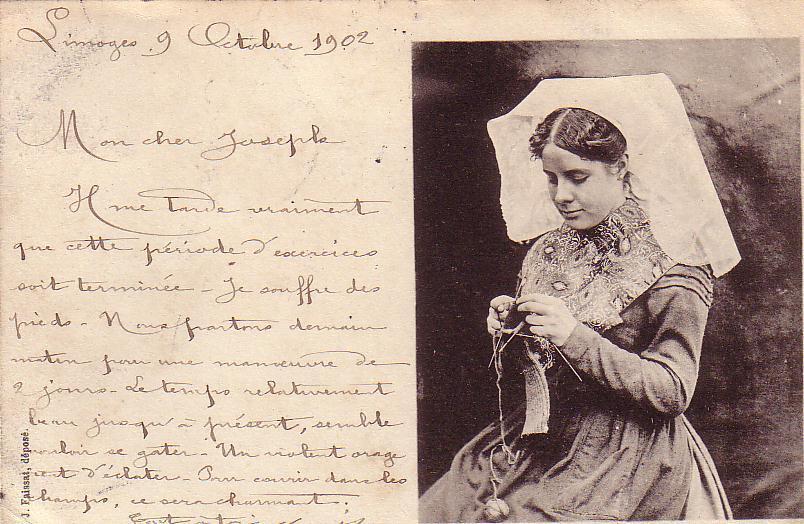 Limoges 9 Octobre 1902
Mon cher Joseph
Il me tarde vraiment
que cette période d'exercices
soit terminée - Je souffre des
pieds - Nous partons demain
matin pour une manœuvre de
2 jours - Le temps relativement
beau jusqu'à présent, semble
vouloir se gâter - Un violent orage
vient d'éclater - Pour courir dans les
champs, ce sera charmant.
Tout à toi
J. Faissat, déposé.